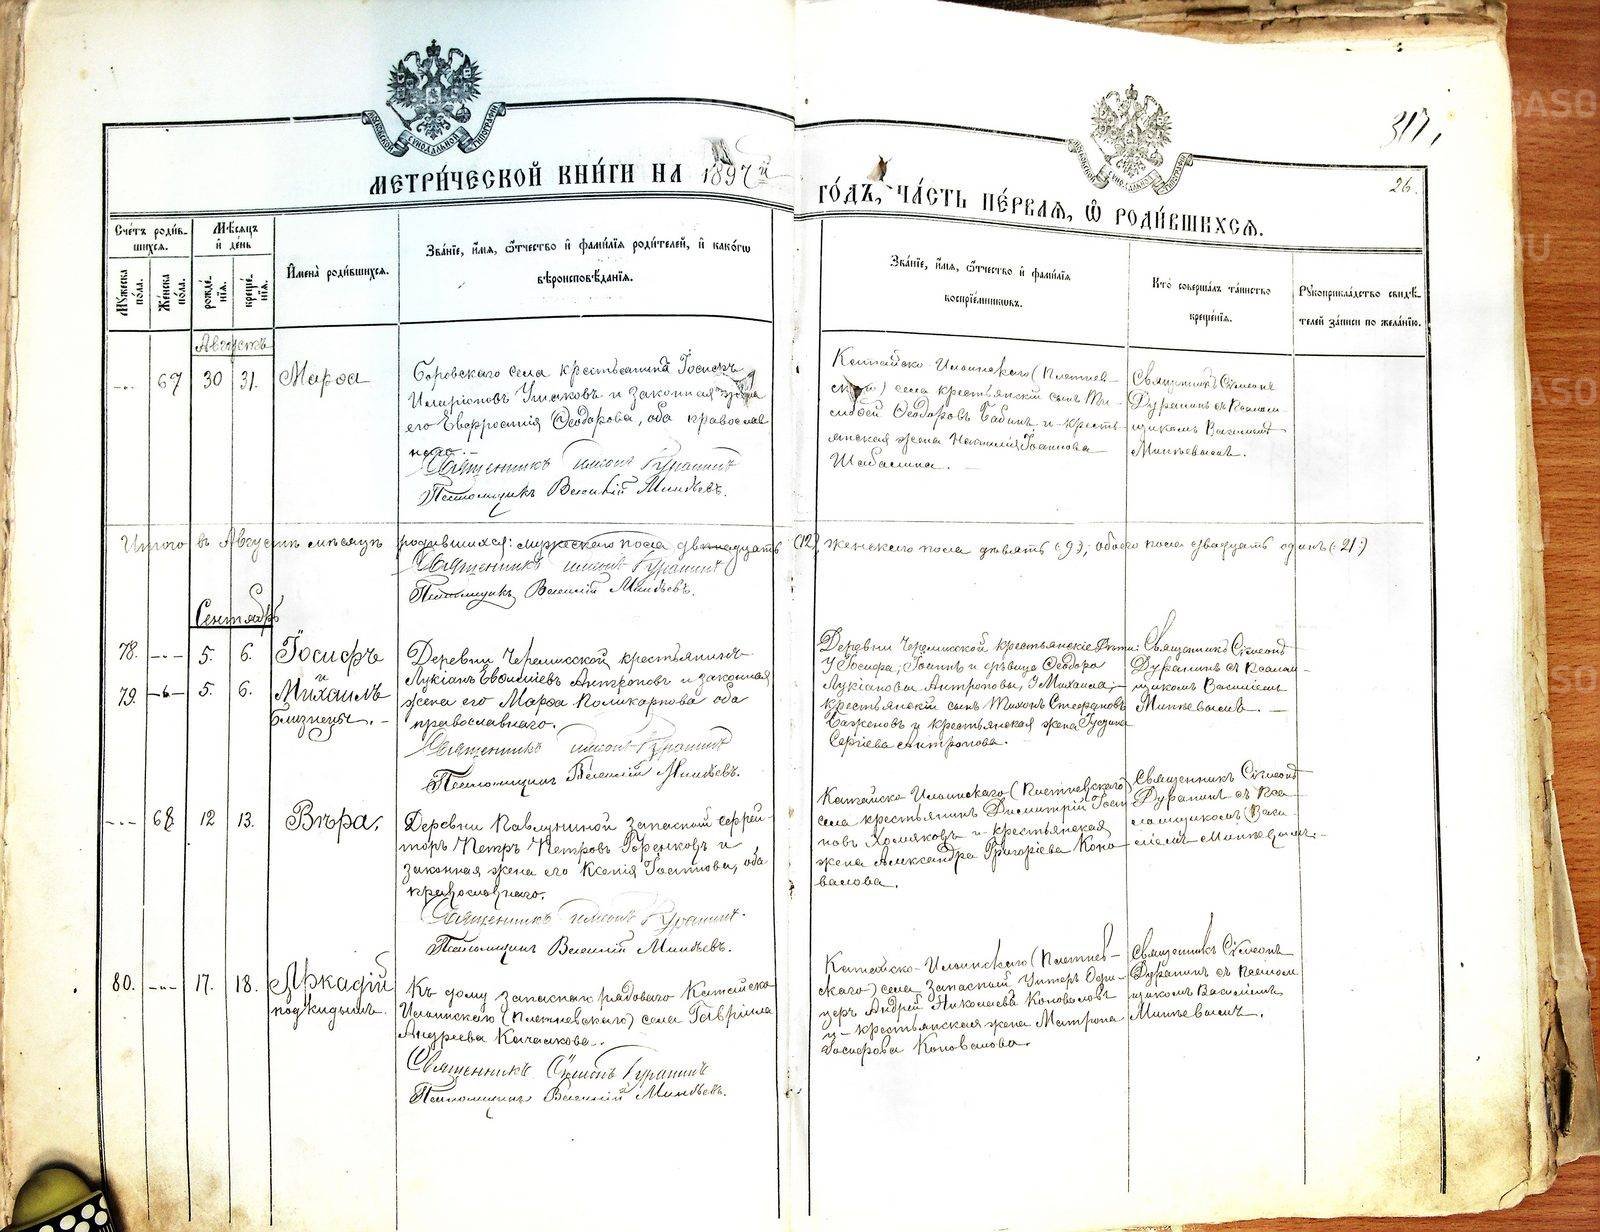 МОСКОВСКОЙ СѴНОДАЛЬНОЙ ТИПОГРАФІИ
317.
МЕТРИ́ЧЕСКОЙ КНИ́ГИ НА 1897й
ГО́ДЪ, ЧА́СТЬ ПЕ́РВАЯ, Ѡ҆ РОДИ́ВШИХСЯ.
26.
Сче́тъ роди́в-
шихся.
Мѣ́сяцъ
и҆ де́нь
Мꙋ́жеска
по́ла.
Же́нска
по́ла.
рожде́-
нія.
креще́-
нія.
И҆мена̀ роди́вшихся.
Зва́ніе, и҆́мя, ѻ҆́тчество и҆ фами́лія роди́телей, и҆ како́гѡ
вѣроисповѣ́данія.
Зва́ніе, и҆́мя, ѻ҆́тчество и҆ фами́лія
воспріе́мниковъ.
Кто̀ соверша́лъ та́инство
креще́нія.
Рꙋкоприкла́дство свидѣ́-
телей за́писи по жела́нію.
Августъ
--- 67 30 31. Марѳа
Боровскаго села крестьянинъ Іосифъ
Иларіоновъ Ушаковъ и законная жена
его Евфросинія Ѳеодорова, оба православ
наго.
Священникъ Симеонъ Дурапинъ
Псаломщикъ Василій Минѣевъ.
Катайско Ильинскаго (Плетнев-
скаго) села крестьянскій сынъ Ти-
моѳей Ѳеодоровъ Бабинъ и кресть-
янская жена Наталія Іоаннова
Шабалина.
Священникъ Сѵмеонъ
Дурапинъ съ Псалом-
щикомъ Василіемъ
Минѣевымъ.
Итого въ Августѣ мѣсяцѣ родившихся: мужескаго пола двенадцать (12), женскаго пола девять (9), обоего пола двадцать одинъ (21)
Священникъ Симеонъ Дурапинъ
Псаломщикъ Василій Минѣевъ.
Сентябрь
78. --- 5. 6. Іосифъ
и
79. --- 5. 6. Михаилъ
близнецы. -
Деревни Черемисской крестьянинъ
Лукіанъ Антроповъ и законная
жена его Марѳа Поликарпова оба
православнаго.
Священникъ Симеонъ Дурапинъ
Псаломщикъ Василій Минѣевъ.
Деревни Черемисской крестьянскіе дѣти:
У Іосифа, Іоаннъ и дѣвица Ѳеодора
Лукіановы Антроповы, У Михаила,
крестьянскій сынъ Тихонъ Стефановъ
Баженовъ и крестьянская жена
Сергіева Антропова.
Священникъ Сѵмеонъ
Дурапинъ съ Псалом-
щикомъ Василіемъ
Минѣевымъ.
--- 68 12 13. Вѣра.
Деревни Павлуниной запасный ефрей-
торъ Петръ Петровъ Горенковъ и
законная жена его Ксенія Іоаннова, оба
православнаго.
Священникъ Симеонъ Дурапинъ.
Псаломщикъ Василій Минѣевъ.
Катайско Ильинскаго (Плетневскаго)
села крестьянинъ Димитрій Іоан-
новъ Хомяковъ и крестьянская
жена Александра Григоріева Коно-
валова.
Священникъ Сѵмеонъ
Дурапинъ съ Пса-
ломщикомъ Васи-
ліемъ Минѣевымъ.
80. --- 17. 18. Аркадій
подкидышъ.
Къ дому запаснаго рядоваго Катайско
Ильинскаго (Плетневскаго) села Гавріила
Андреева Качалкова.
Священникъ Симеонъ Дурапинъ
Псаломщикъ Василій Минѣевъ.
Катайско-Ильинскаго (Плетнев-
скаго) села запасный Унтеръ Офи-
церъ Андрей Николаевъ Коноваловъ
и крестьянская жена Матрона
Іосифова Коновалова.
Священникъ Сѵмеонъ
Дурапинъ съ Псалом
щикомъ Василіемъ
Минѣевымъ.